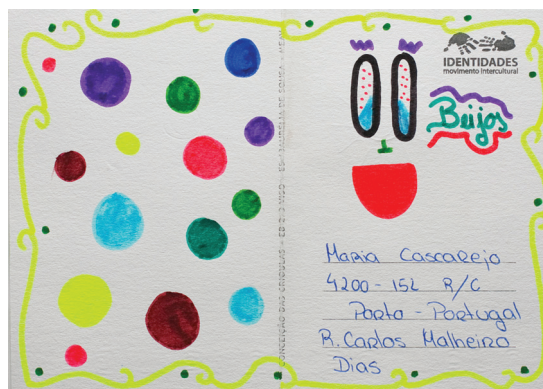 IDENTIDADES
movimento intercultural
Beijos
CONCEIÇÃO DAS CRIOULAS – EB
Maria Cascarejo
4200-152 R/C
Porto - Portugal
R. Carlos Malheiro
Dias